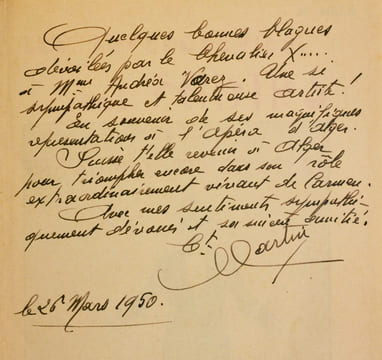 Quelques bonnes blagues
dévoilées par le Chevalier X....
à Mme Andréa Varez. Une si
sympathique et talentueuse artiste!
En souvenir de ses magnifiques
représentations à l'Opéra d'Alger.
Puisse t'elle revenir à Alger
pour triompher encore dans son rôle
extraordinairement vivant de Carmen.
Avec mes sentiments sympathi-
quement dévoués et sa amitié.
Ct. Martin
le 26 Mars 1950.